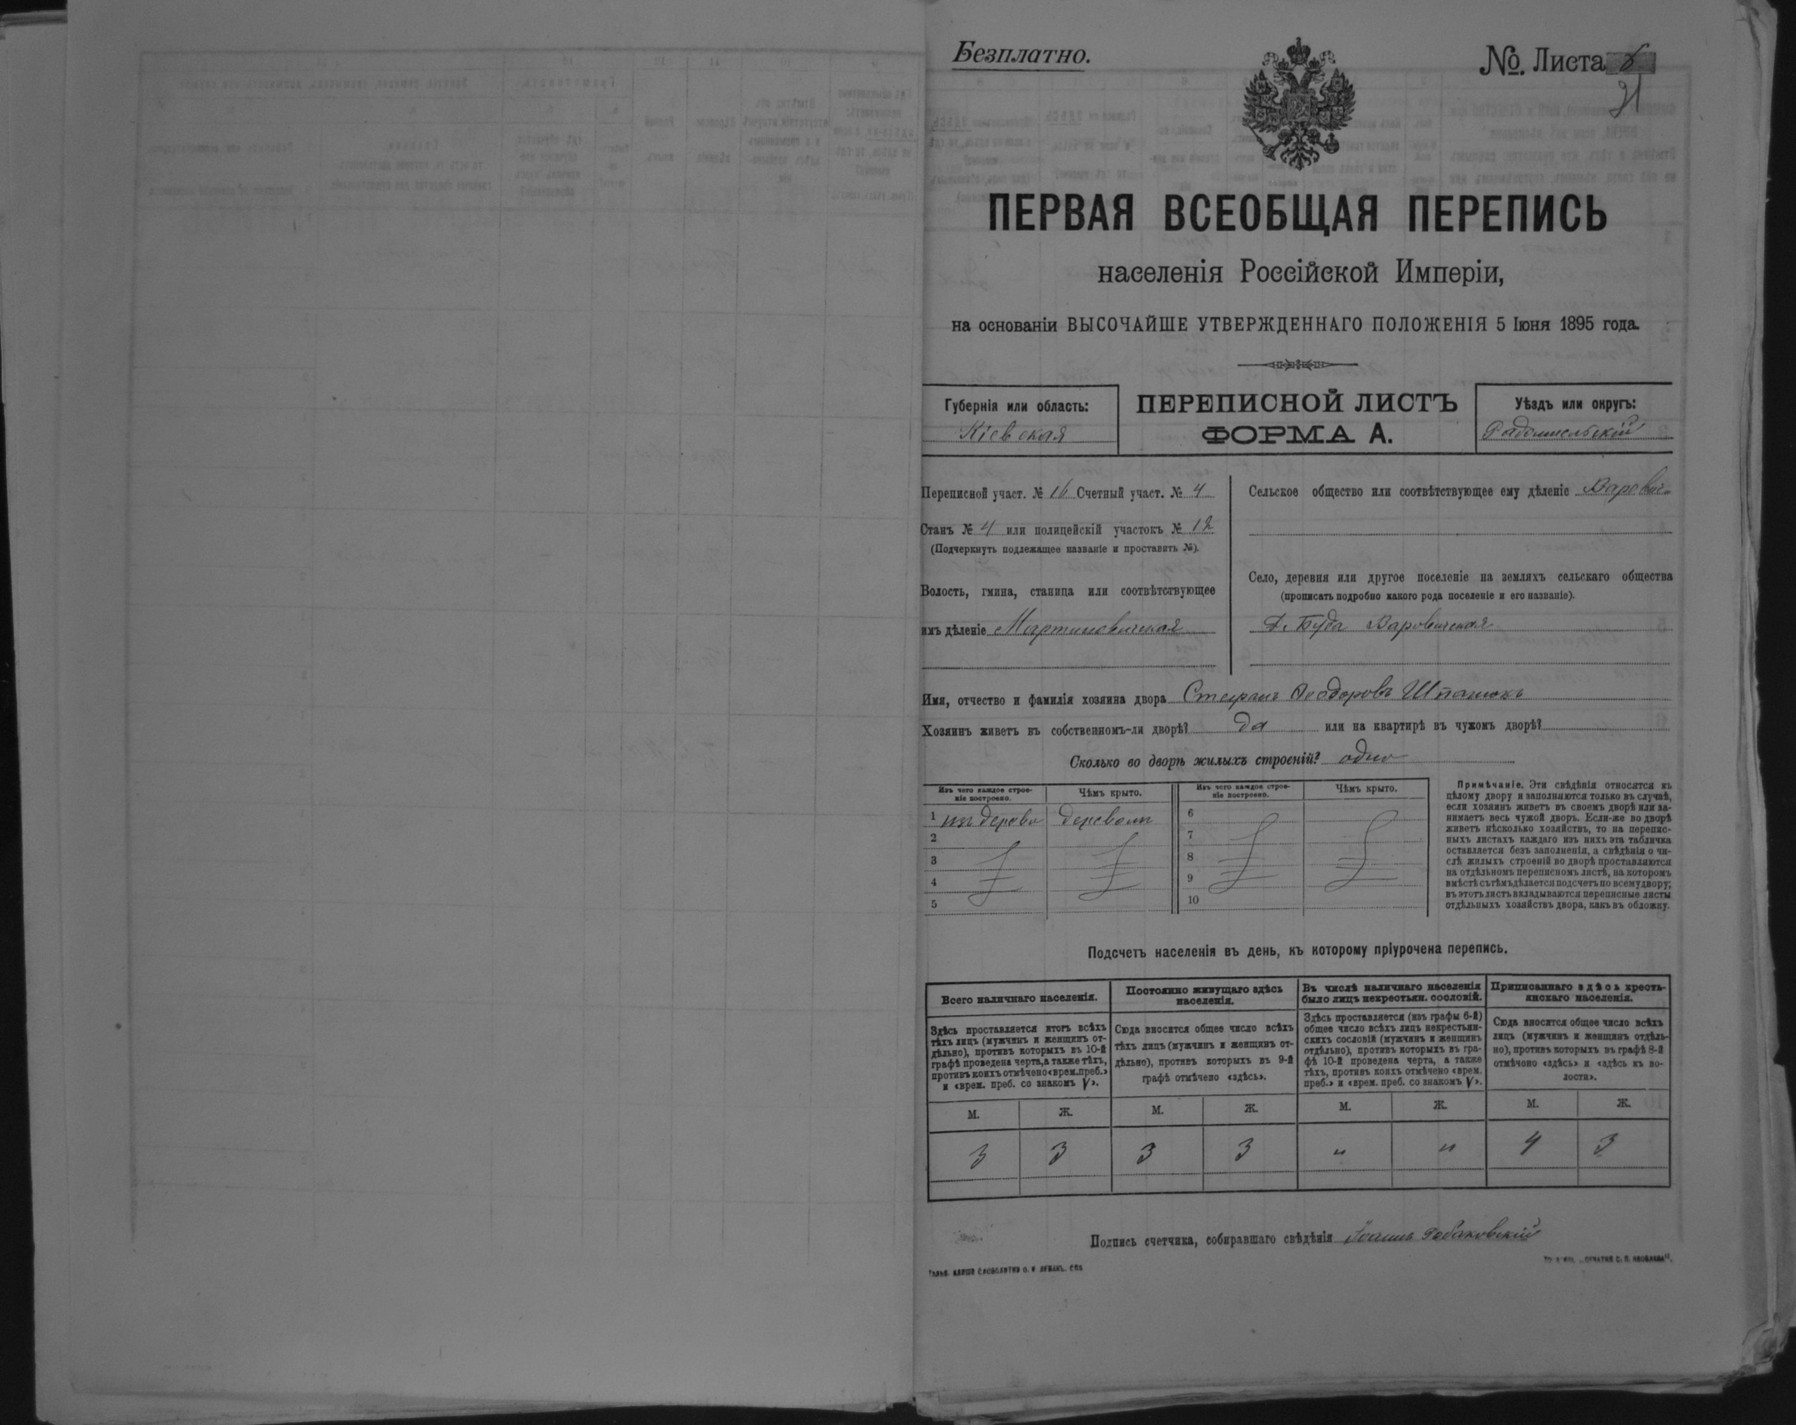 Безплатно.
№. Листа 8
21
ПЕРВАЯ ВСЕОБЩАЯ ПЕРЕПИСЬ
населенія Россійской Имперіи,
на основаніи ВЫСОЧАЙШЕ УТВЕРЖДЕННАГО ПОЛОЖЕНІЯ 5 Іюня 1895 года.
Губернія или область:
Кіевская
ПЕРЕПИСНОЙ ЛИСТЪ
ФОРМА А.
Уѣздъ или округъ:
Радомысльскій
Переписной участ. № 16 Счетный участ. № 4
Станъ № 4 или полицейскій участокъ № 12
(Подчеркнуть подлежащее названіе и проставить №).
Волость, гмина, станица или соотвѣтствующее
имъ дѣленіе Мартиновичская
Сельское общество или соотвѣтствующее ему дѣленіе
Село, деревня или другое поселеніе на земляхъ сельскаго общества
(прописать подробно какого рода поселеніе и его названіе).
Д. Буда Варовичская
Имя, отчество и фамилія хозяина двора Стефанъ Ѳеодоровъ Шпанюкъ
Хозяинъ живетъ въ собственномъ-ли дворѣ? да или на квартирѣ въ чужомъ дворѣ?
Сколько во дворѣ жилыхъ строеній? одно
Изъ чего каждое строеніе построено. Чѣмъ крыто. Изъ чего каждое строеніе построено. Чѣмъ крыто.
1 изъ дерева деревомъ 6
2 7
3 8
4 9
5 10
Примѣчаніе. Эти свѣдѣнія относятся къ
цѣлому двору и заполняются только въ случаѣ,
если хозяинъ живетъ въ своемъ дворѣ или за-
нимаетъ весь чужой дворъ. Если-же во дворѣ
живетъ нѣсколько хозяйствъ, то на перепис-
ныхъ листахъ каждаго изъ нихъ эта табличка
оставляется безъ заполненія, а свѣдѣнія о чи-
слѣ жилыхъ строеній во дворѣ проставляются
на отдѣльномъ переписномъ листѣ, на которомъ
вмѣстѣ съ тѣмъ дѣлается подсчетъ по всему двору;
въ этотъ листъ вкладываются переписные листы
отдѣльныхъ хозяйствъ двора, какъ въ обложку.
Подсчетъ населенія въ день, къ которому пріурочена перепись.
Всего наличнаго населенія.
Здѣсь проставляется итогъ всѣхъ
тѣхъ лицъ (мужчинъ и женщинъ от-
дѣльно), противъ которыхъ въ 10-й
графѣ проведена черта, а также тѣхъ,
противъ коихъ отмѣчено «врем. преб.»
и «врем. преб. со знакомъ V».
Постоянно живущаго здѣсь
населенія.
Сюда вносится общее число всѣхъ
тѣхъ лицъ (мужчинъ и женщинъ от-
дѣльно), противъ которыхъ въ 9-й
графѣ отмѣчено «здѣсь».
Въ числѣ наличнаго населенія
было лицъ некрестьян. сословій.
Здѣсь проставляется (изъ графы 6-й)
общее число всѣхъ лицъ некрестьян-
скихъ сословій (мужчинъ и женщинъ
отдѣльно), противъ которыхъ въ гра-
фѣ 10-й проведена черта, а также
тѣхъ, противъ коихъ отмѣчено «врем.
преб.» и «врем. преб. со знакомъ V».
Приписаннаго здѣсь кресть-
янскаго населенія.
Сюда вносится общее число всѣхъ
лицъ (мужчинъ и женщинъ отдѣль-
но), противъ которыхъ въ графѣ 8-й
отмѣчено «здѣсь» и «здѣсь въ во-
лости».
М. Ж. М. Ж. М. Ж. М. Ж.
3 3 3 3 " " 4 3
Подпись счетчика, собиравшаго свѣдѣнія